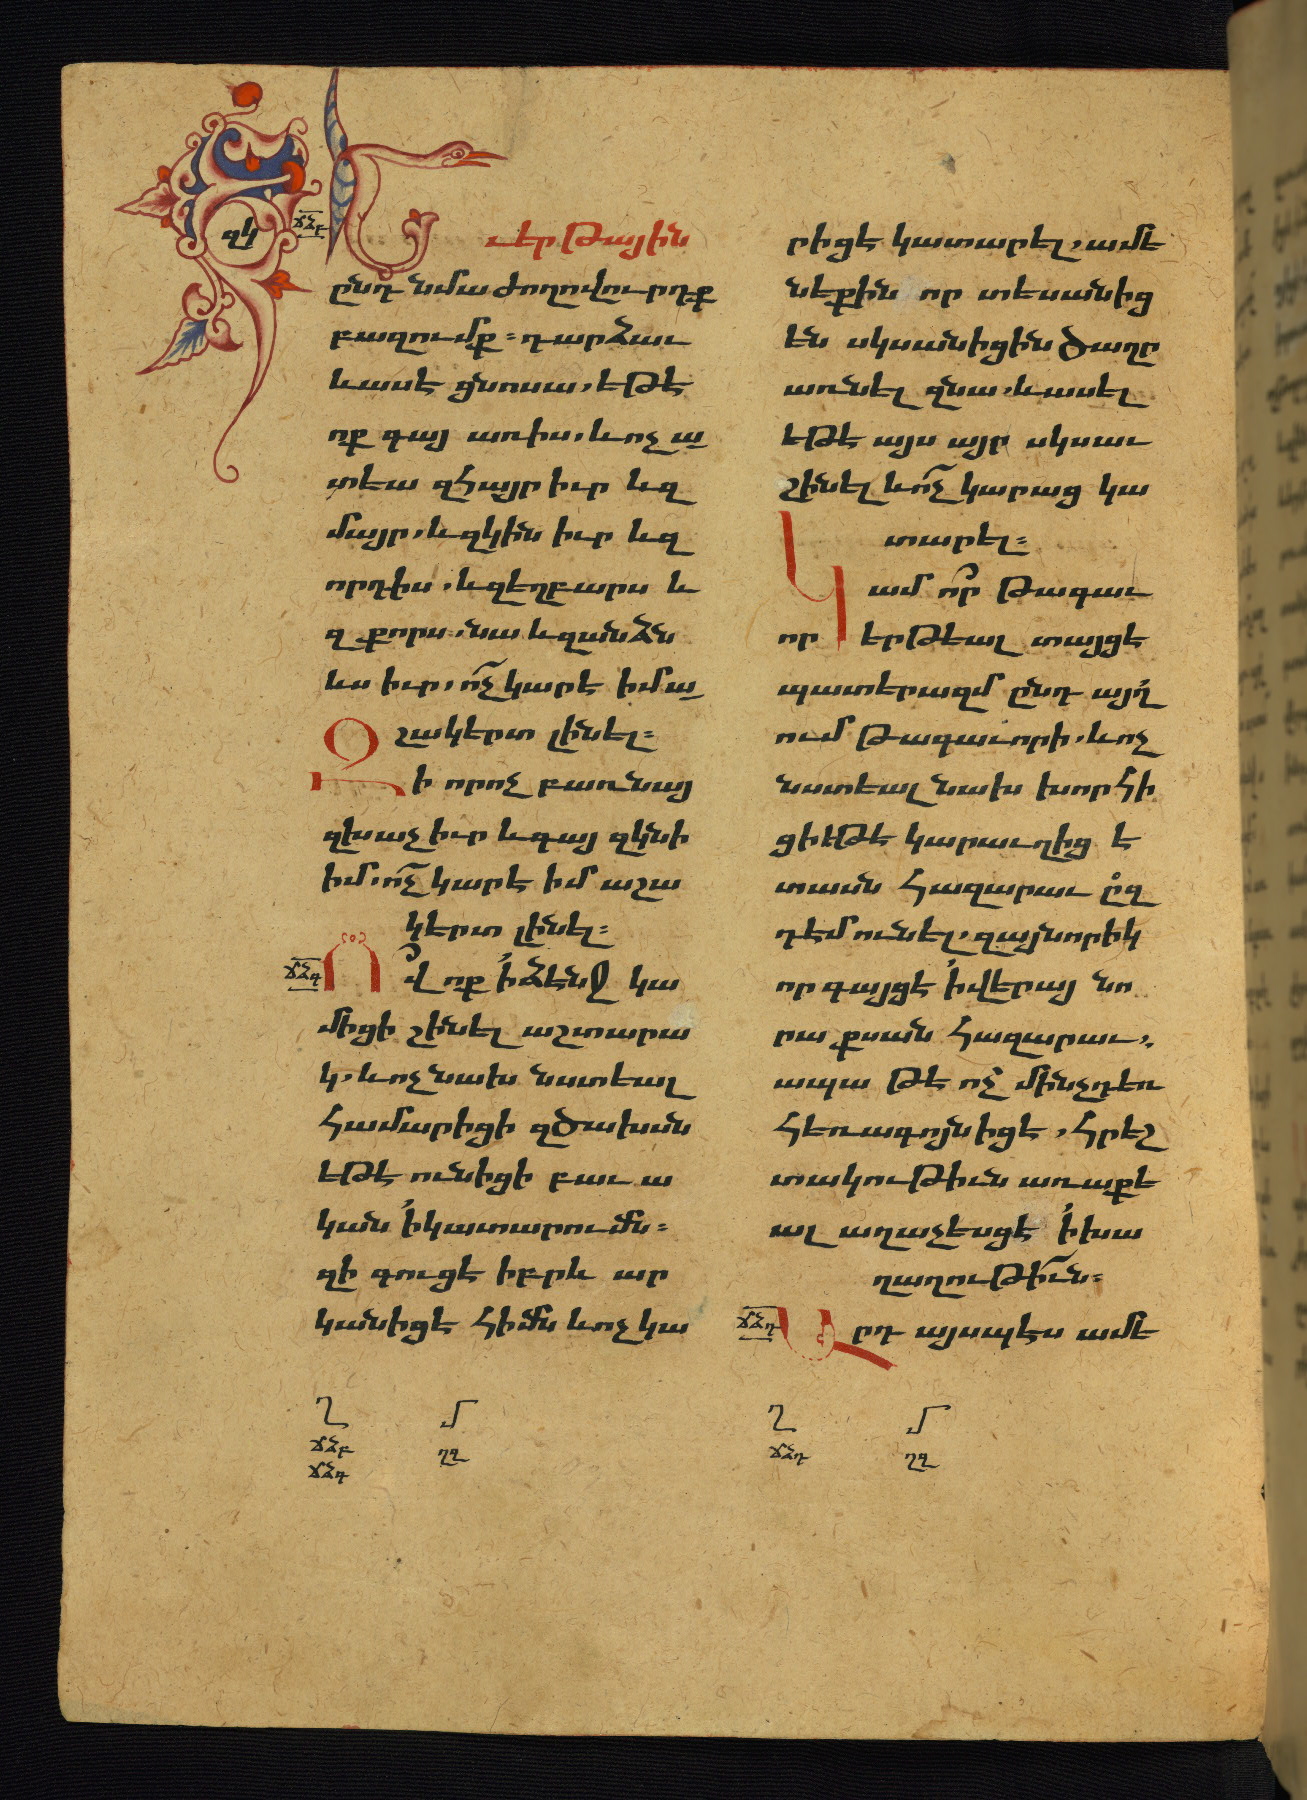 զկ
ճձբ
Եւ երթային
ընդ նմա ժողովուրդք
բազումք։ դարձաւ
և ասէ ցնոսա, եթէ
ոք գայ առ իս, և ոչ ա
տեա զհայր իւր և զ
մայր, և զկին իւր և զ
որդիս, և զեղբարս և
զքորս, նա և զանձն
ևս իւր, ո՞չ կարէ իմ ա
շակերտ լինել։
Զի որ ոչ բառնայ
զխաչ իւր և գայ զկնի
իմ, ո՞չ կարէ իմ աշա
կերտ լինել։
ճձգ
Ո՞վ ոք ի ձէնջ կա
միցի շինել աշտարա
կ, և ոչ նախ նստեալ
համարիցի զծախսն
եթէ ունիցի բաւ ա
կան ի կատարումն։
զի գուցէ իբրև ար
կանիցէ հիմն և ոչ կա
րիցէ կատարել, ամե
նեքին որ տեսանից
են սկսանիցին ծաղր
առնել զնա, և ասել
եթէ այս այր սկսաւ
շինել և ո՞չ կարաց կա
տարել։
Կամ ո՞ր թագաւ
որ երթեալ տայցէ
պատերազմ ընդ այլ
ում թագաւորի, և ոչ
նստեալ նախ խորհի
ցի եթէ կարաւղից է
տասն հազարաւ ըզ
դէմ ունել, զայնորիկ
որ գայցէ ի վերայ նո
րա քսան հազարաւ,
ապա թէ ոչ մինչդեռ
հեռագոյն իցէ, հրեշ
տակութիւն առաքե
ալ աղաչեսցէ ի խա
ղաղութիւն։
ճձդ
Արդ այսպէս ամե
Ղ Մ
ճձբ ղզ
ճձգ
Ղ Մ
ճձդ ղզ